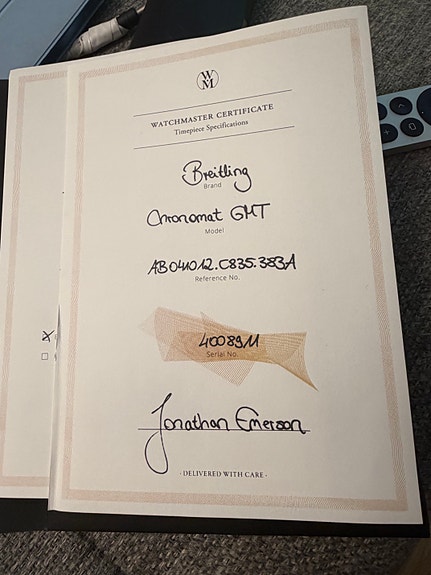 WM
WATCHMASTER CERTIFICATE
Timepiece Specifications
Breitling
Brand
Chronomat GMT
Model
AB041012.C835.383A
Reference No.
4008911
Serial No.
Jonathan Emerson
· DELIVERED WITH CARE ·